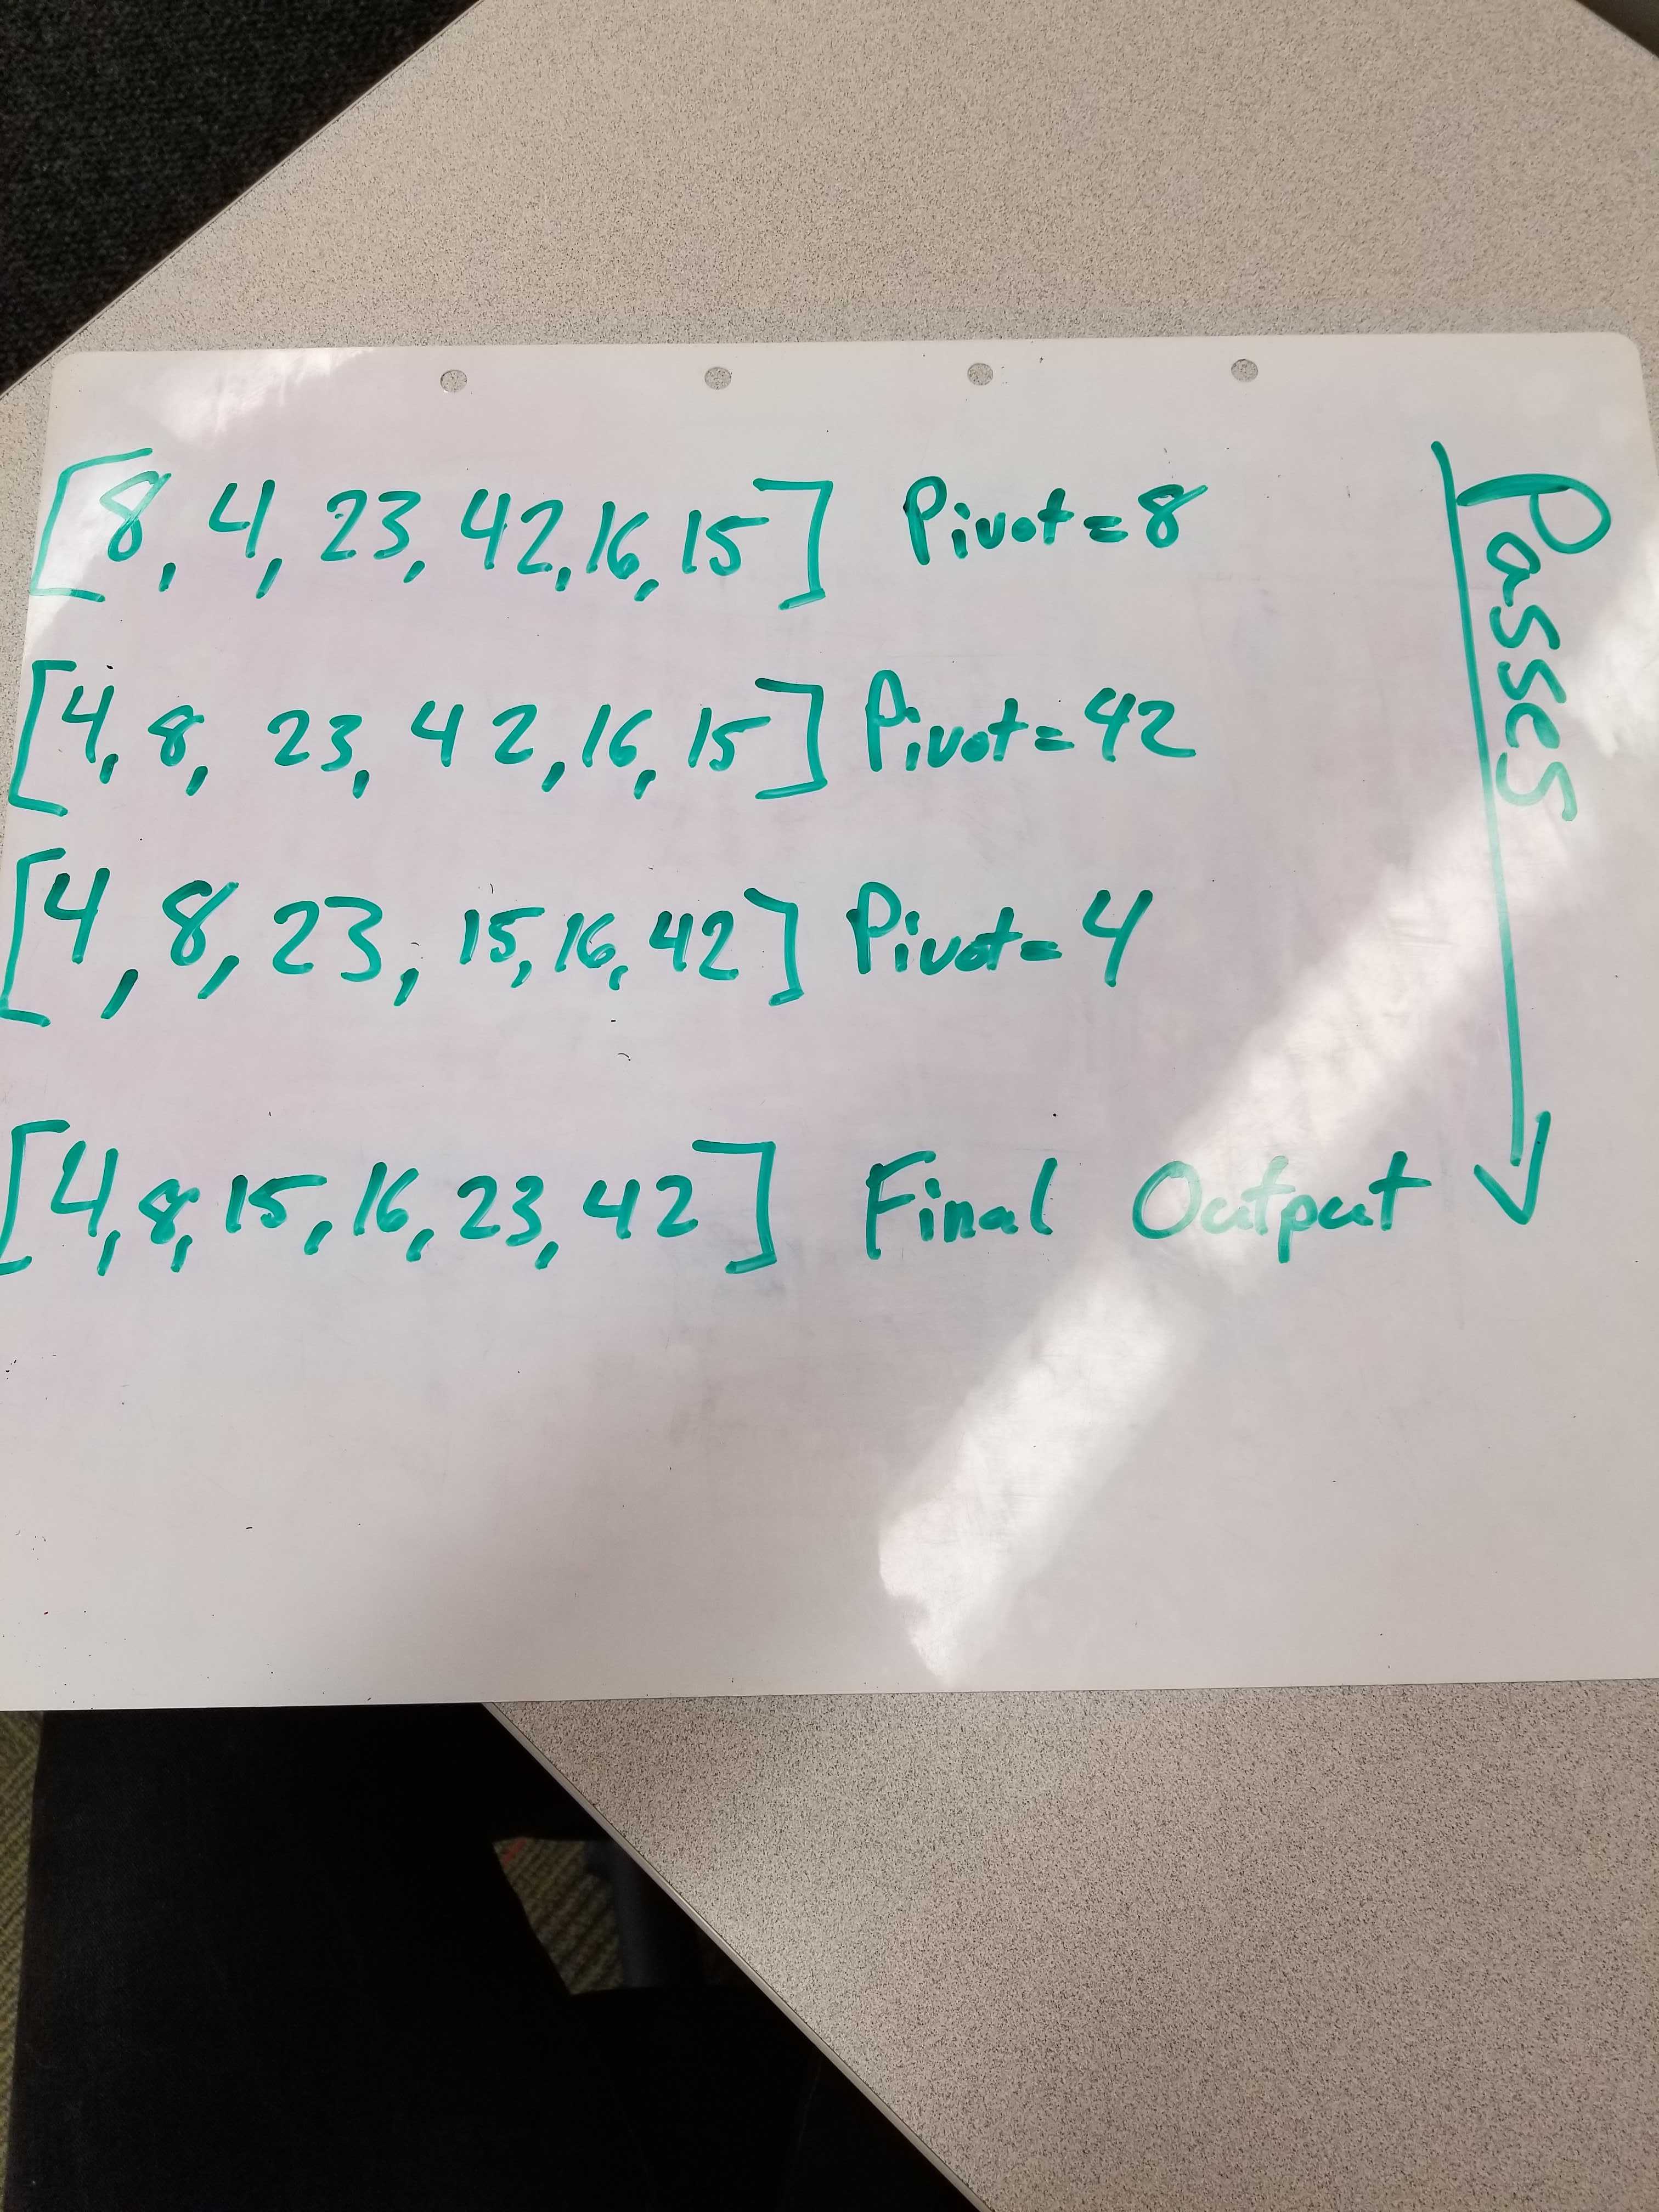 [8, 4, 23, 42, 16, 15] Pivot=8
[4, 8, 23, 42, 16, 15] Pivot=42
[4, 8, 23, 15, 16, 42] Pivot=4
[4, 8, 15, 16, 23, 42] Final Output
Passes